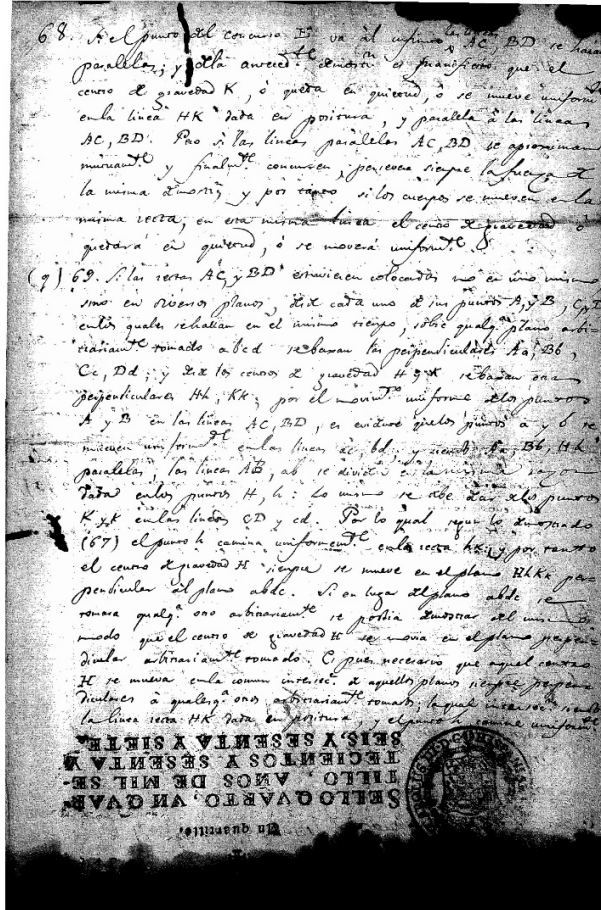 68. Si el punto del concurso E va al infinito las lineas AC, BD se haran
paralelas; y dela antecedte demostrn es manifiesto que el
centro de gravedad K, ó queda en quietud, ó se mueve uniform
en la linea HK dada en positura, y paralela à las lineas
AC, BD. Pero si las lineas paralelas AC, BD se aproximan
mutuamte y finalmte concurren, persevera siempre la fuerza de
la misma demostrn y por tanto si los cuerpos se mueven en la
misma recta, en esta misma linea el centro de gravedad ó
quedara en quietud, ó se moverá uniformte
(9) 69. Si las rectas AC, y BD estuviesen colocadas no en uno mismo
sino en diversos planos, desde cada uno de sus puntos A, y B, C, y D
enlos quales se hallan en el mismo tiempo, sobre qualqa plano arbi-
trariamte tomado abcd se baxan las perpendiculares Aa, Bb,
Cc, Dd; y desde los centros de gravedad H y K se baxan otras
perpendiculares Hh, Kk; por el movimto uniforme delos puntos
A y B en las lineas AC, BD, es evidente que los puntos a y b se
mueven uniformte en las lineas ac, bd; y siendo Aa, Bb, Hh
paralelas, las lineas AB, ab se dividen en la misma razon
dada enlos puntos H, h: Lo mismo se debe decir delos puntos
K y k en las lineas CD y cd. Por lo qual segun lo demostrado
(67) el punto h camina uniformemte en la recta hk; y por tanto
el centro de gravedad H siempre se mueve en el plano HhKk per-
pendicular al plano abdc. Si en lugar del plano abdc se
tomara qualqa otro arbitrariamte se podia demostrar del mismo
modo que el centro de gravedad H se movia en el plano perpen-
dicular arbitrariamte tomado. Es pues necesario que aquel centro
H se mueva en la comun intersecn de aquellos planos siempre perpen-
diculares à qualesqa otros arbitrariamte tomados, la qual intersecn siendo
la linea recta HK dada en positura, y el punto h camine uniformte
SELLO QVARTO, VN QVAR-
TILLO, AÑOS DE MIL SE-
TECIENTOS Y SESENTA Y
SEIS, Y SESENTA Y SIETE.
Un quartillo.